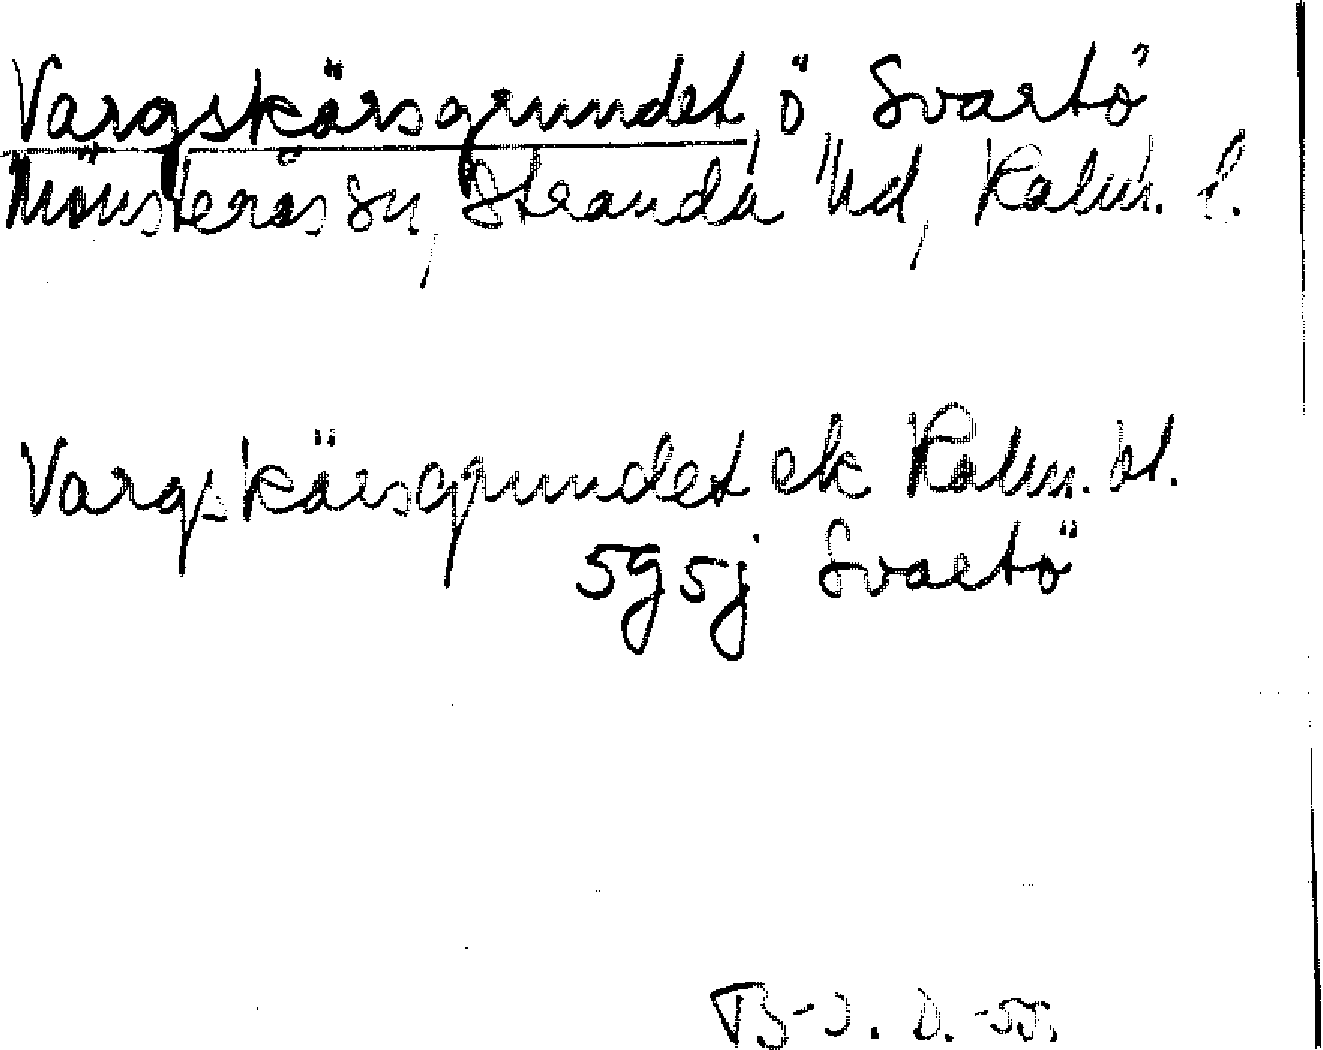 Vargskärsgrundet, ö, Svartö
Mönsterås sn, Stranda hd, Kalm. l.
Vargskärsgrundet ek Kalm. bl.
5g5j Svartö
B-J. D. -55.